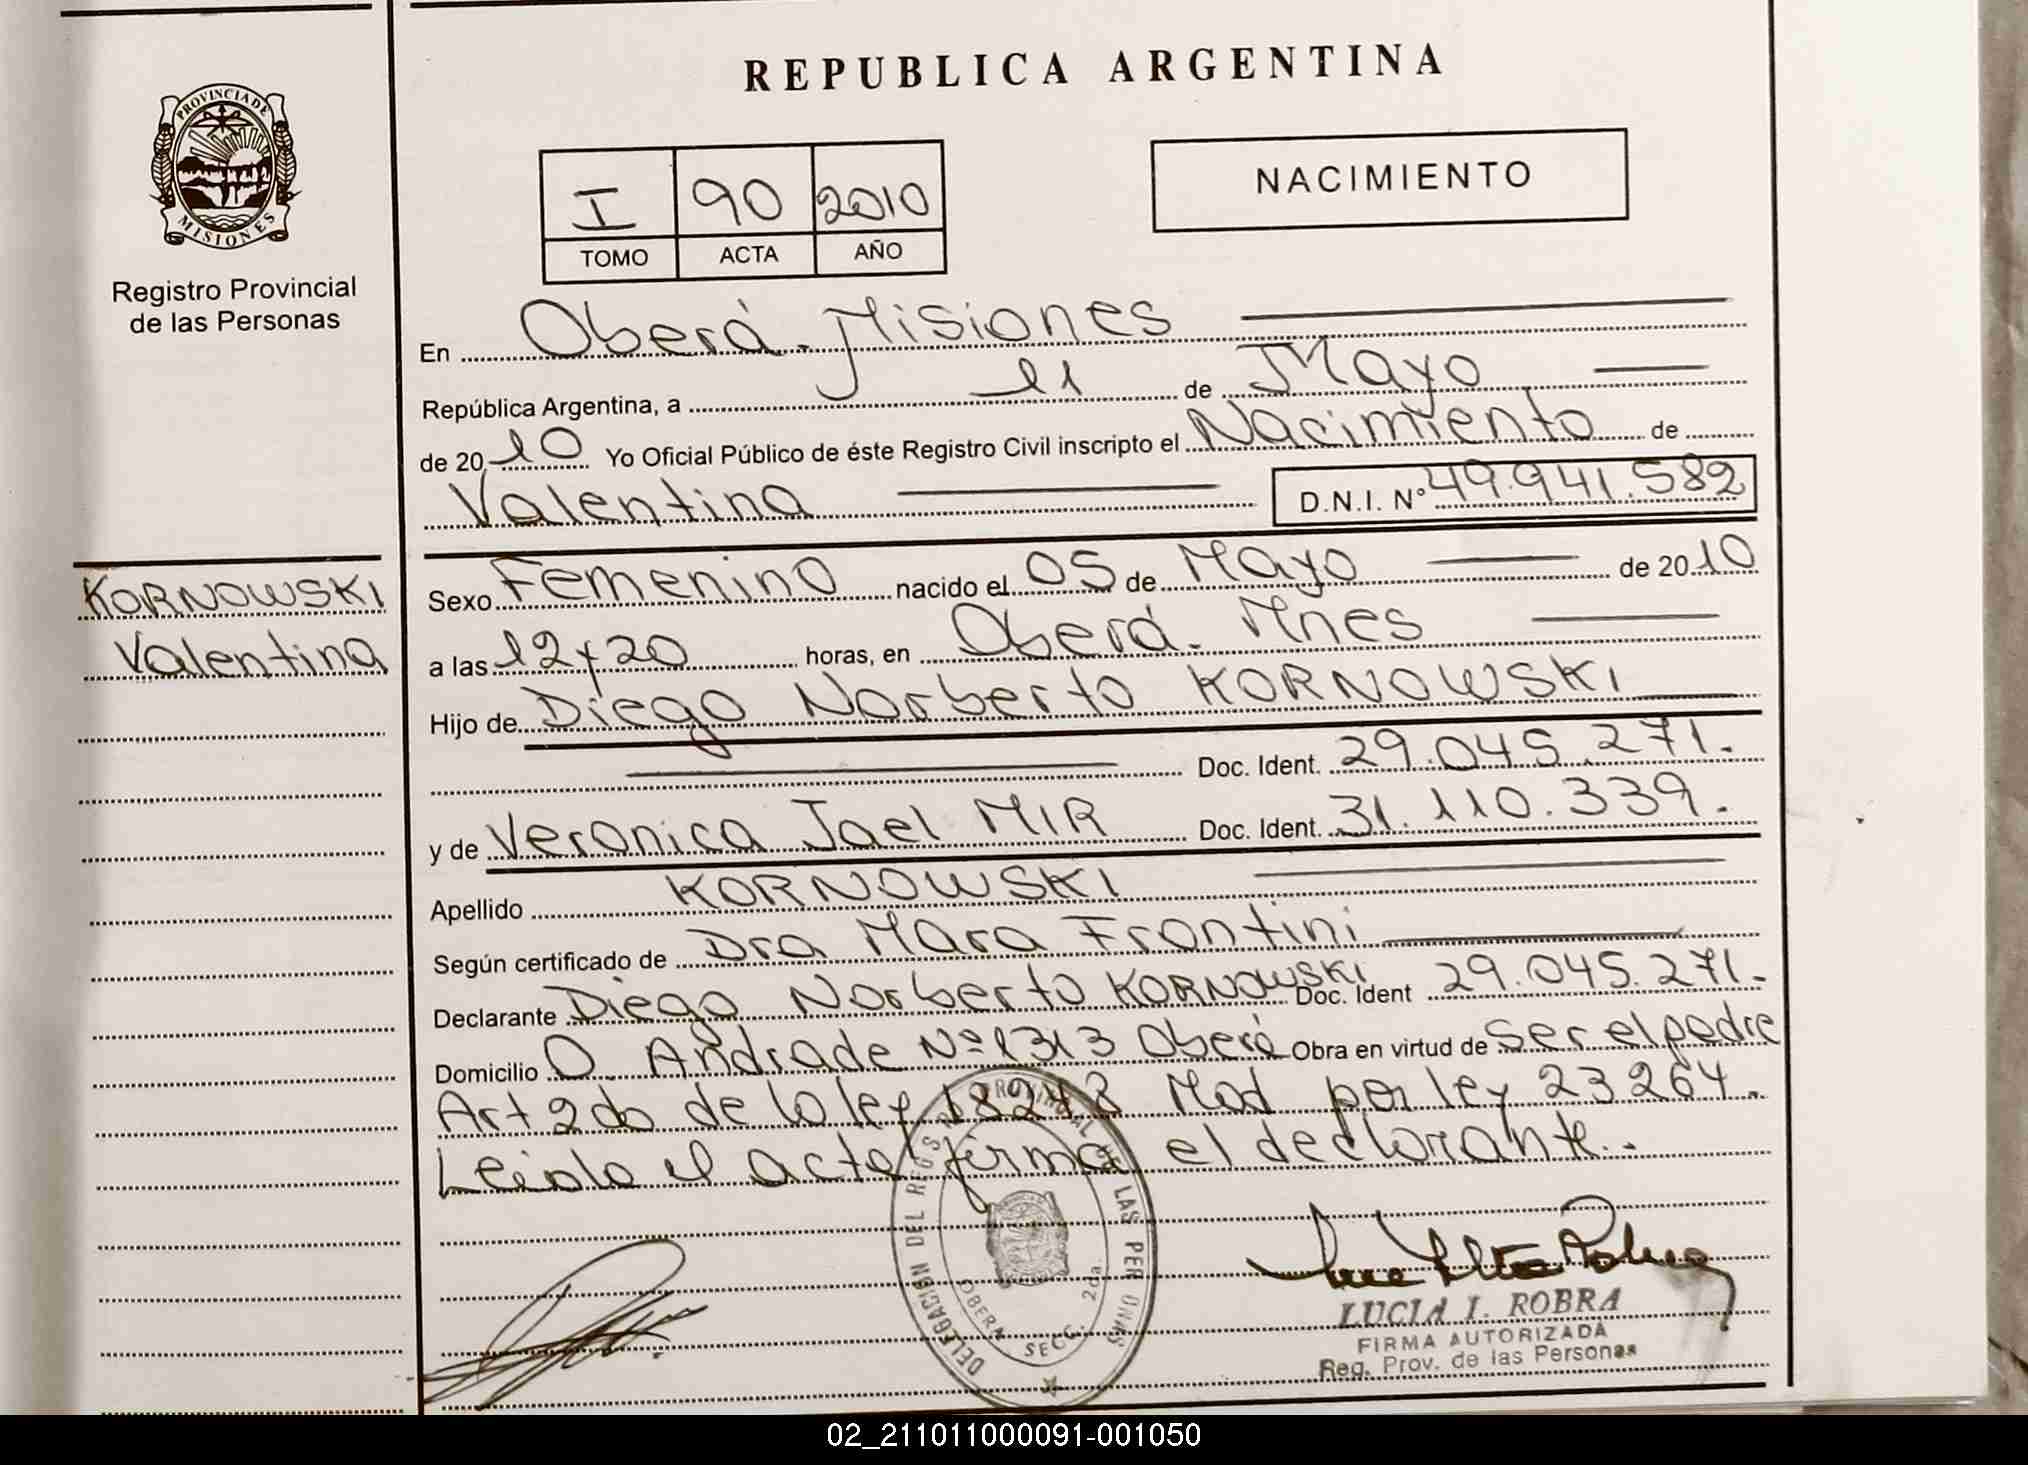 REPUBLICA ARGENTINA
PROVINCIA DE
MISIONES
Registro Provincial
de las Personas
I 90 2010
TOMO ACTA AÑO
NACIMIENTO
En Oberá - Misiones
República Argentina, a 11 de Mayo
de 2010 Yo Oficial Público de éste Registro Civil inscripto el Nacimiento de
Valentina D.N.I. Nº 49.941.582
KORNOWSKI
Valentina
Sexo Femenino nacido el 05 de Mayo de 2010
a las 12 y 20 horas, en Oberá. Mnes
Hijo de Diego Norberto KORNOWSKI
Doc. Ident. 29.045.271.
y de Veronica Jael MIR Doc. Ident. 31.110.339.
Apellido KORNOWSKI
Según certificado de Dra Mara Frontini
Declarante Diego Norberto KORNOWSKI Doc. Ident 29.045.271.
Domicilio O. Andrade Nº 1313 Oberá Obra en virtud de ser el padre
Art 2do de la ley 18248 Mod por ley 23264.
Leida el acta firma el declarante.
DELEGACION DEL REGISTRO PROVINCIAL DE LAS PERSONAS
OBERA SECC. 2da.
LUCIA I. ROBRA
FIRMA AUTORIZADA
Reg. Prov. de las Personas
02_211011000091-001050